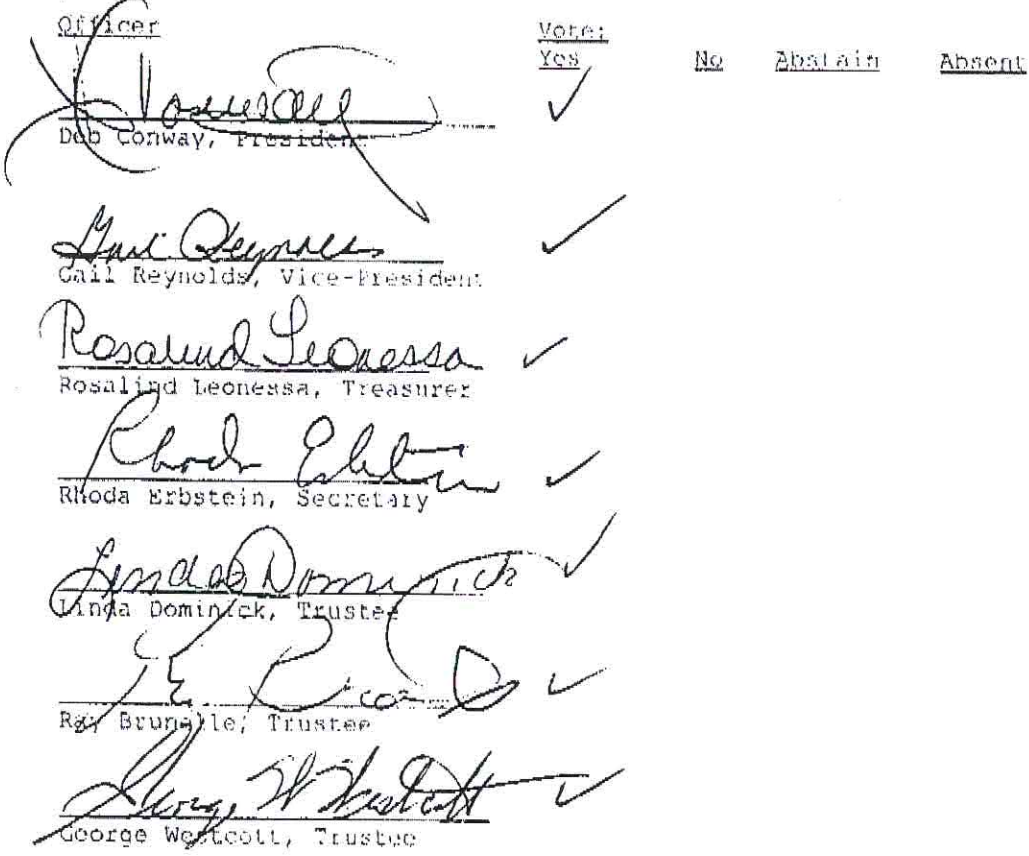 Officer Vote:
Yes No Abstain Absent
✓
Deb Conway, President
Gail Reynolds ✓
Gail Reynolds, Vice-President
Rosalind Leonessa ✓
Rosalind Leonessa, Treasurer
Rhoda Erbstein ✓
Rhoda Erbstein, Secretary
Linda Dominick ✓
Linda Dominick, Trustee
✓
Ray Brunelle, Trustee
George W Westcott ✓
George Westcott, Trustee